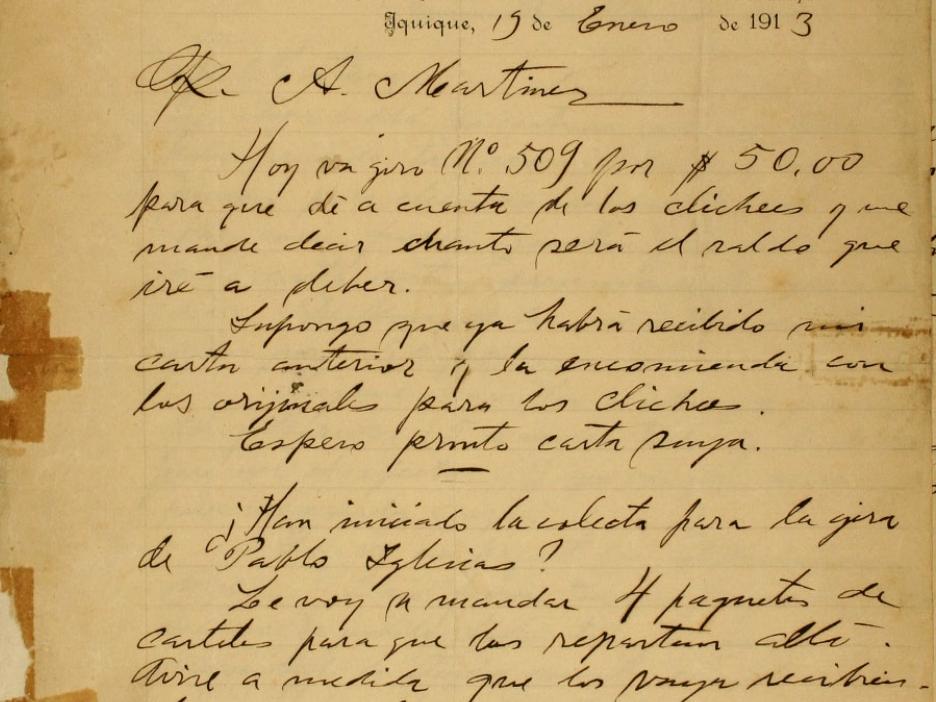 Iquique, 19 de Enero de 1913
A. Martinez
Hoy va giro N.º 509 por $ 50,00
para que dé a cuenta de los clichees y me
mande decir cuanto será el saldo que
iré a deber.
Supongo que ya habrá recibido mi
carta anterior y la encomienda con
los originales para los clichees.
Espero pronto carta suya.
¿Han iniciado la colecta para la gira
de Pablo Iglesias?
Le voy a mandar 4 paquetes de
carteles para que los repartan allá.
Avise a medida que los vaya recibien-